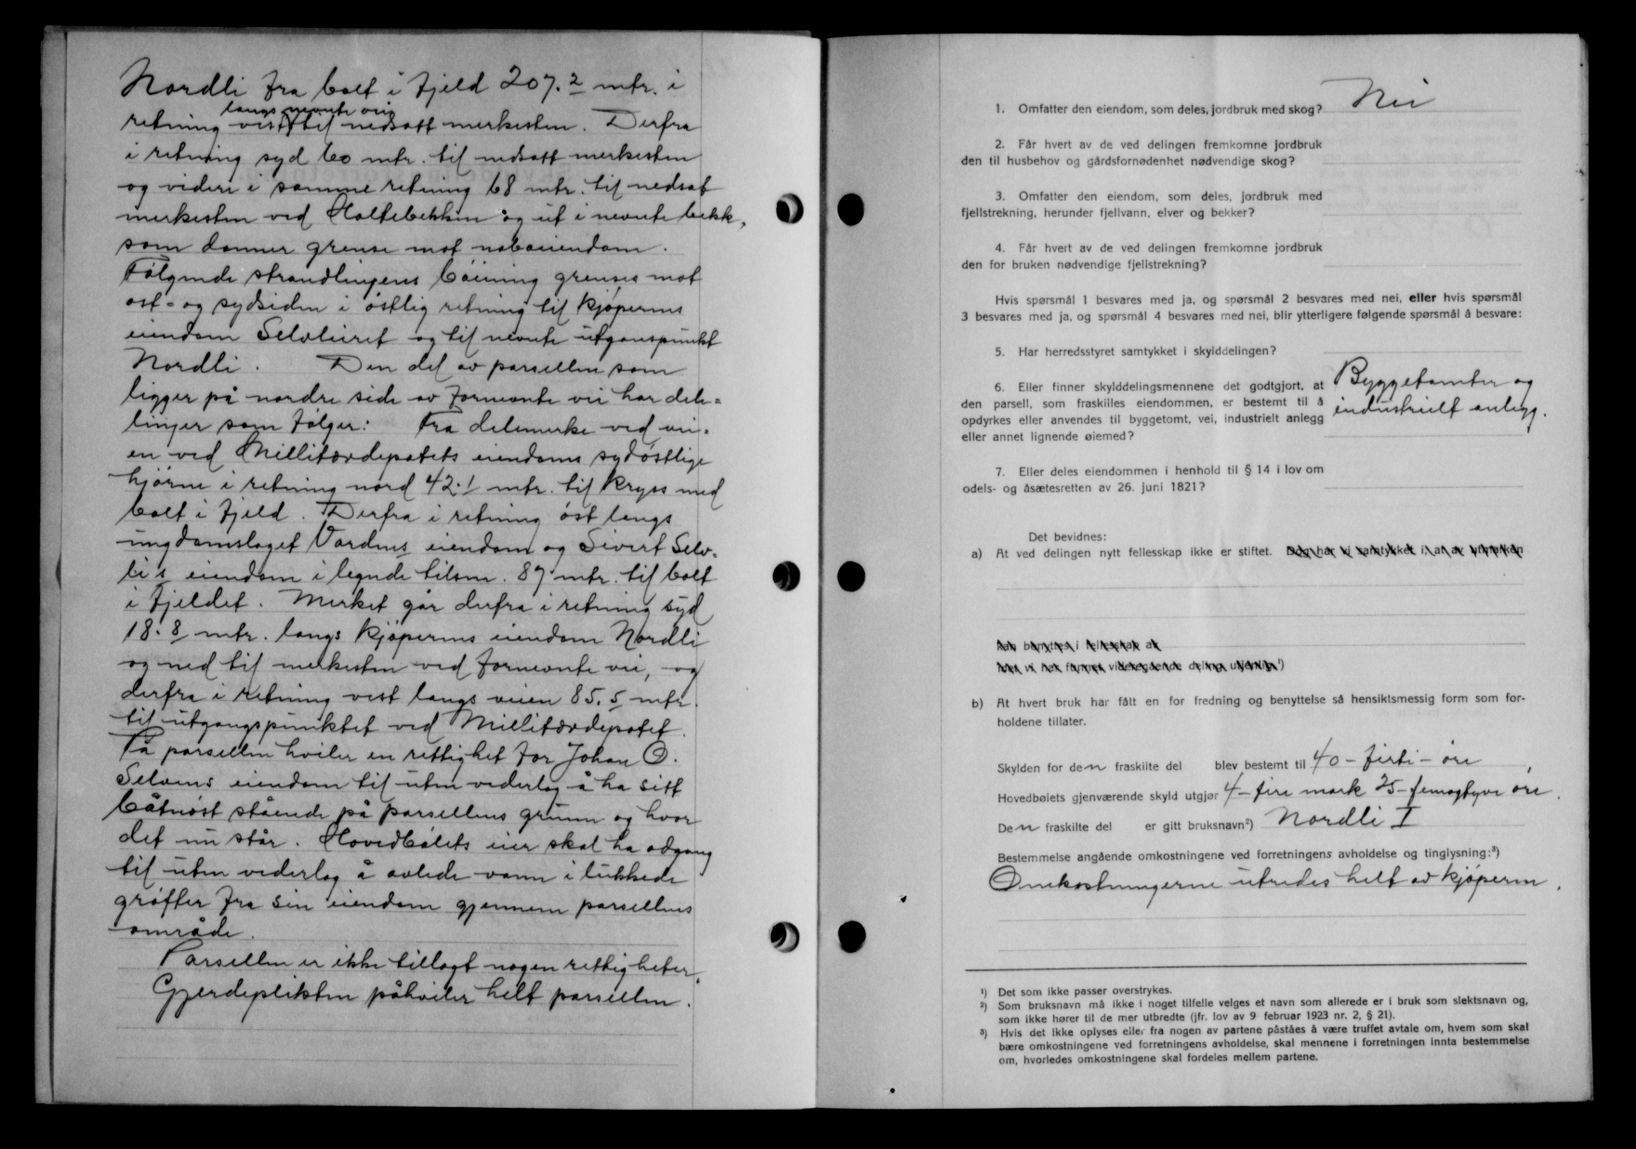 Nordli fra bolt i fjeld 207.2 mtr. i
langs nevnte vei
retning vest til nedsatt merkesten. Derfra
i retning syd 60 mtr. til nedsatt merkesten
og videre i samme retning 68 mtr. til nedsat
merkesten ved Holtebekken og ut i nevnte bekk,
som danner grense mot naboeiendom.
Følgende strandlinjens bøining grenses mot
øst- og sydsiden i østlig retning til kjøperens
eiendom Selvleiret og til nevnte utganspunkt
Nordli. Den del av parsellen som
ligger på nordre side av fornevnte vei har dele-
linjer som følger: Fra delemerke ved vei-
en ved Millitærdepotets eiendoms sydøstlige
hjørne i retning nord 42.1 mtr. til kryss med
bolt i fjeld. Derfra i retning øst langs
ungdomslaget Vardens eiendom og Sivert Selv-
li's eiendom i legnde tilsm. 87 mtr. til bolt
i fjeldet. Merket går derfra i retning syd
18.8 mtr. langs kjøperens eiendom Nordli
og ned til merkesten ved fornevnte vei, og
derfra i retning vest langs veien 85.5 mtr.
til utgangspunktet ved Millitærdepotet.
På parsellen hviler en rettighet for Johan O.
Selvens eiendom til uten vederlag å ha sitt
båtnøst stående på parsellens grunn og hvor
det nu står. Hovedbølets eier skal ha adgang
til uten vederlag å avlede vann i lukkede
grøfter fra sin eiendom gjennem parsellens
område.
Parsellen er ikke tillagt nogen rettigheter.
Gjerdeplikten påhviler helt parsellen.
1. Omfatter den eiendom, som deles, jordbruk med skog? Nei
2. Får hvert av de ved delingen fremkomne jordbruk
den til husbehov og gårdsfornødenhet nødvendige skog?
3. Omfatter den eiendom, som deles, jordbruk med
fjellstrekning, herunder fjellvann, elver og bekker?
4. Får hvert av de ved delingen fremkomne jordbruk
den for bruken nødvendige fjellstrekning?
Hvis spørsmål 1 besvares med ja, og spørsmål 2 besvares med nei, eller hvis spørsmål
3 besvares med ja, og spørsmål 4 besvares med nei, blir ytterligere følgende spørsmål å besvare:
5. Har herredsstyret samtykket i skylddelingen?
6. Eller finner skylddelingsmennene det godtgjort, at
den parsell, som fraskilles eiendommen, er bestemt til å
opdyrkes eller anvendes til byggetomt, vei, industrielt anlegg
eller annet lignende øiemed?
Byggetomter og
industrielt anlegg.
7. Eller deles eiendommen i henhold til § 14 i lov om
odels- og åsætesretten av 26. juni 1821?
Det bevidnes:
a) At ved delingen nytt fellesskap ikke er stiftet. Dog har vi samtykket i at av utmarken
kan benyttes i fellesskap at
men vi har funnet videregående deling utjenlig¹)
b) At hvert bruk har fått en for fredning og benyttelse så hensiktsmessig form som for-
holdene tillater.
Skylden for den fraskilte del blev bestemt til 40 - firti - øre,
Hovedbølets gjenværende skyld utgjør 4 - fire mark 25 - femogtyve øre.
Den fraskilte del er gitt bruksnavn²) Nordli I
Bestemmelse angående omkostningene ved forretningens avholdelse og tinglysning:³)
Omkostningerne utredes helt av kjøperen.
¹) Det som ikke passer overstrykes.
²) Som bruksnavn må ikke i noget tilfelle velges et navn som allerede er i bruk som slektsnavn og,
som ikke hører til de mer utbredte (jfr. lov av 9 februar 1923 nr. 2, § 21).
³) Hvis det ikke oplyses eller fra nogen av partene påståes å være truffet avtale om, hvem som skal
bære omkostningene ved forretningens avholdelse, skal mennene i forretningen innta bestemmelse
om, hvorledes omkostningene skal fordeles mellem partene.